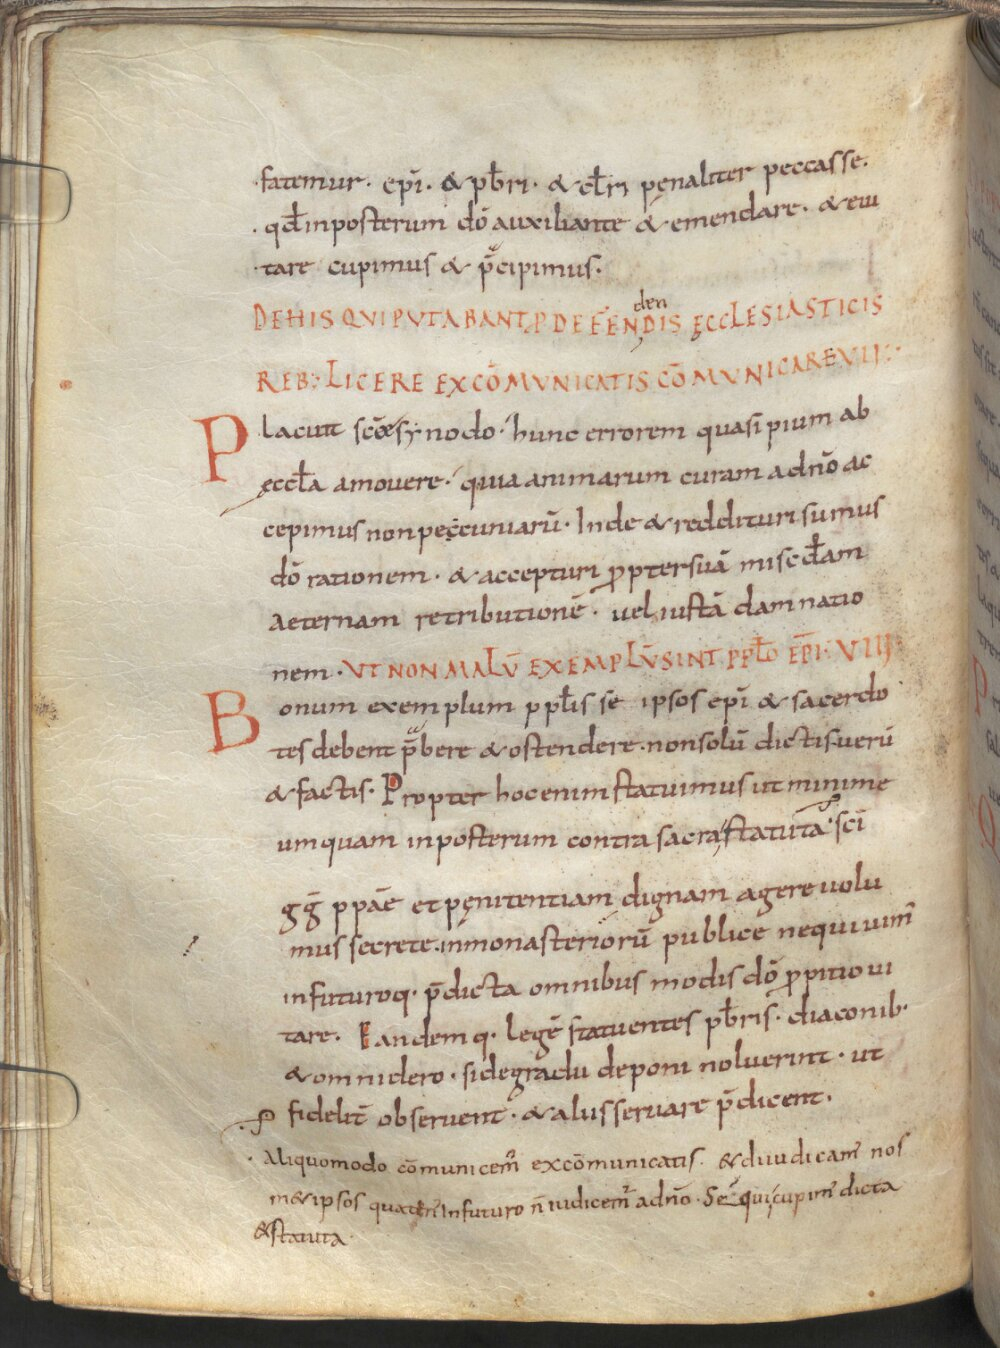 fatemur. epi̅. & pb̅ri. & cl̅ri penaliter peccasse.
qd̅ inposterum dō auxiliante & emendare. & eui
tare cupimus & p̅cipimus.
den
DE HIS QVI PVTABANT P DEFENDIS ĘCCLESIASTICIS
REB: LICERE EXCŌMVNICATIS CŌMVNICARE VII:
Placuit scōe synodo hunc errorem quasi pium ab
ęccl̅a amouere. quia animarum curam a dn̄o ac
cepimus non peccuniarū. Inde & reddituri sumus
dō rationem. & accepturi ꝓpter suā misc̅d̅am
aeternam retributionē. uel iustā damnatio
nem. VT NON MALŪ EXEMPLŪ SINT PPL̅O EPI̅. VIII
Bonum exemplum ppl̅is se ipsos epi̅ & sacerdo
tes debent p̅bere & ostendere. non solū dictis uerū
& factis. Propter hoc enim statuimus ut minime
umquam inposterum contra sacra statuta sc̅i
gg̅ ppāe et pęnitentiam dignam agere uolu
mus secrete. in monasteriorū publice nequiuim᷒
in futuroq. p̅dicta omnibus modis dō ꝓpitio ui
tare. Eandemq. legē statuentes pb̅ris. diaconib.
& omni clero. si de gradu deponi noluerint. ut
fidelit̅ obseruent. & aliis seruare p̅dicent.
Aliquomodo cōmunicem᷒ excōmunicatis. & diiudicam᷒ nos
m& ipsos quaten᷒ In futuro n̄ iudicem᷒ a dn̄o. Sequi cupim᷒ dicta
& statuta.